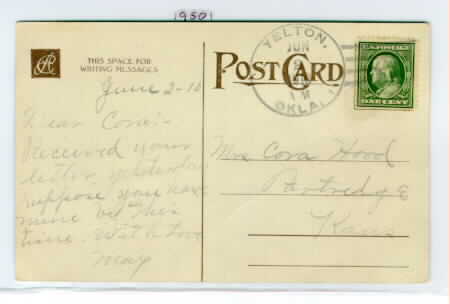 1950
THIS SPACE FOR
WRITING MESSAGES
POST CARD
YELTON,
JUN
OKLA.
U.S. POSTAGE
ONE CENT
June 2-10
Dear Cora:-
Received your
letter yesterday
suppose you have
mine by this
time. With Love
May
Mrs Cora Hood
Partridge
Kans